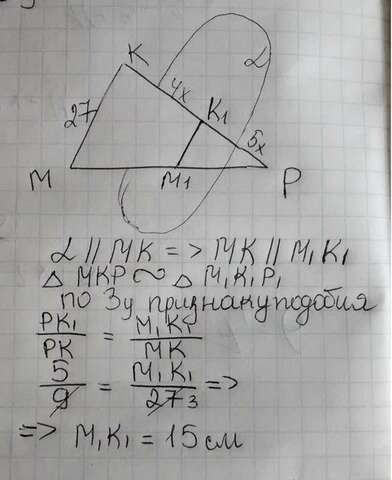 K
α
4x
K₁
27
5x
M
M₁
P
α || MK => MK || M₁K₁
△ MKP ~ △ M₁K₁P₁
по 3у признаку подобия
PK₁/PK = M₁K₁/MK
5/9 = M₁K₁/27 3 =>
=> M₁K₁ = 15 см